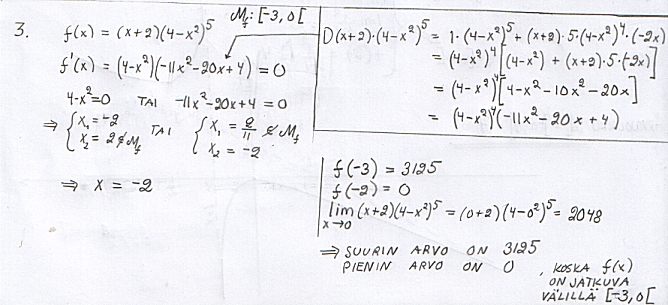 3. f(x) = (x+2)(4-x²)⁵ M_f: [-3, 0[
f'(x) = (4-x²)(-11x²-20x+4) = 0
4-x²=0 TAI -11x²-20x+4 = 0
⇒ { x₁ = -2 TAI { x₁ = 2/11 ∉ M_f
x₂ = 2 ∉ M_f x₂ = -2
⇒ x = -2
D(x+2)·(4-x²)⁵ = 1·(4-x²)⁵ + (x+2)·5·(4-x²)⁴·(-2x)
= (4-x²)⁴[(4-x²) + (x+2)·5·(-2x)]
= (4-x²)⁴[4-x²-10x²-20x]
= (4-x²)⁴(-11x²-20x+4)
f(-3) = 3125
f(-2) = 0
lim (x+2)(4-x²)⁵ = (0+2)(4-0²)⁵ = 2048
x→0
⇒ SUURIN ARVO ON 3125
PIENIN ARVO ON 0 , KOSKA f(x)
ON JATKUVA
VÄLILLÄ [-3, 0[